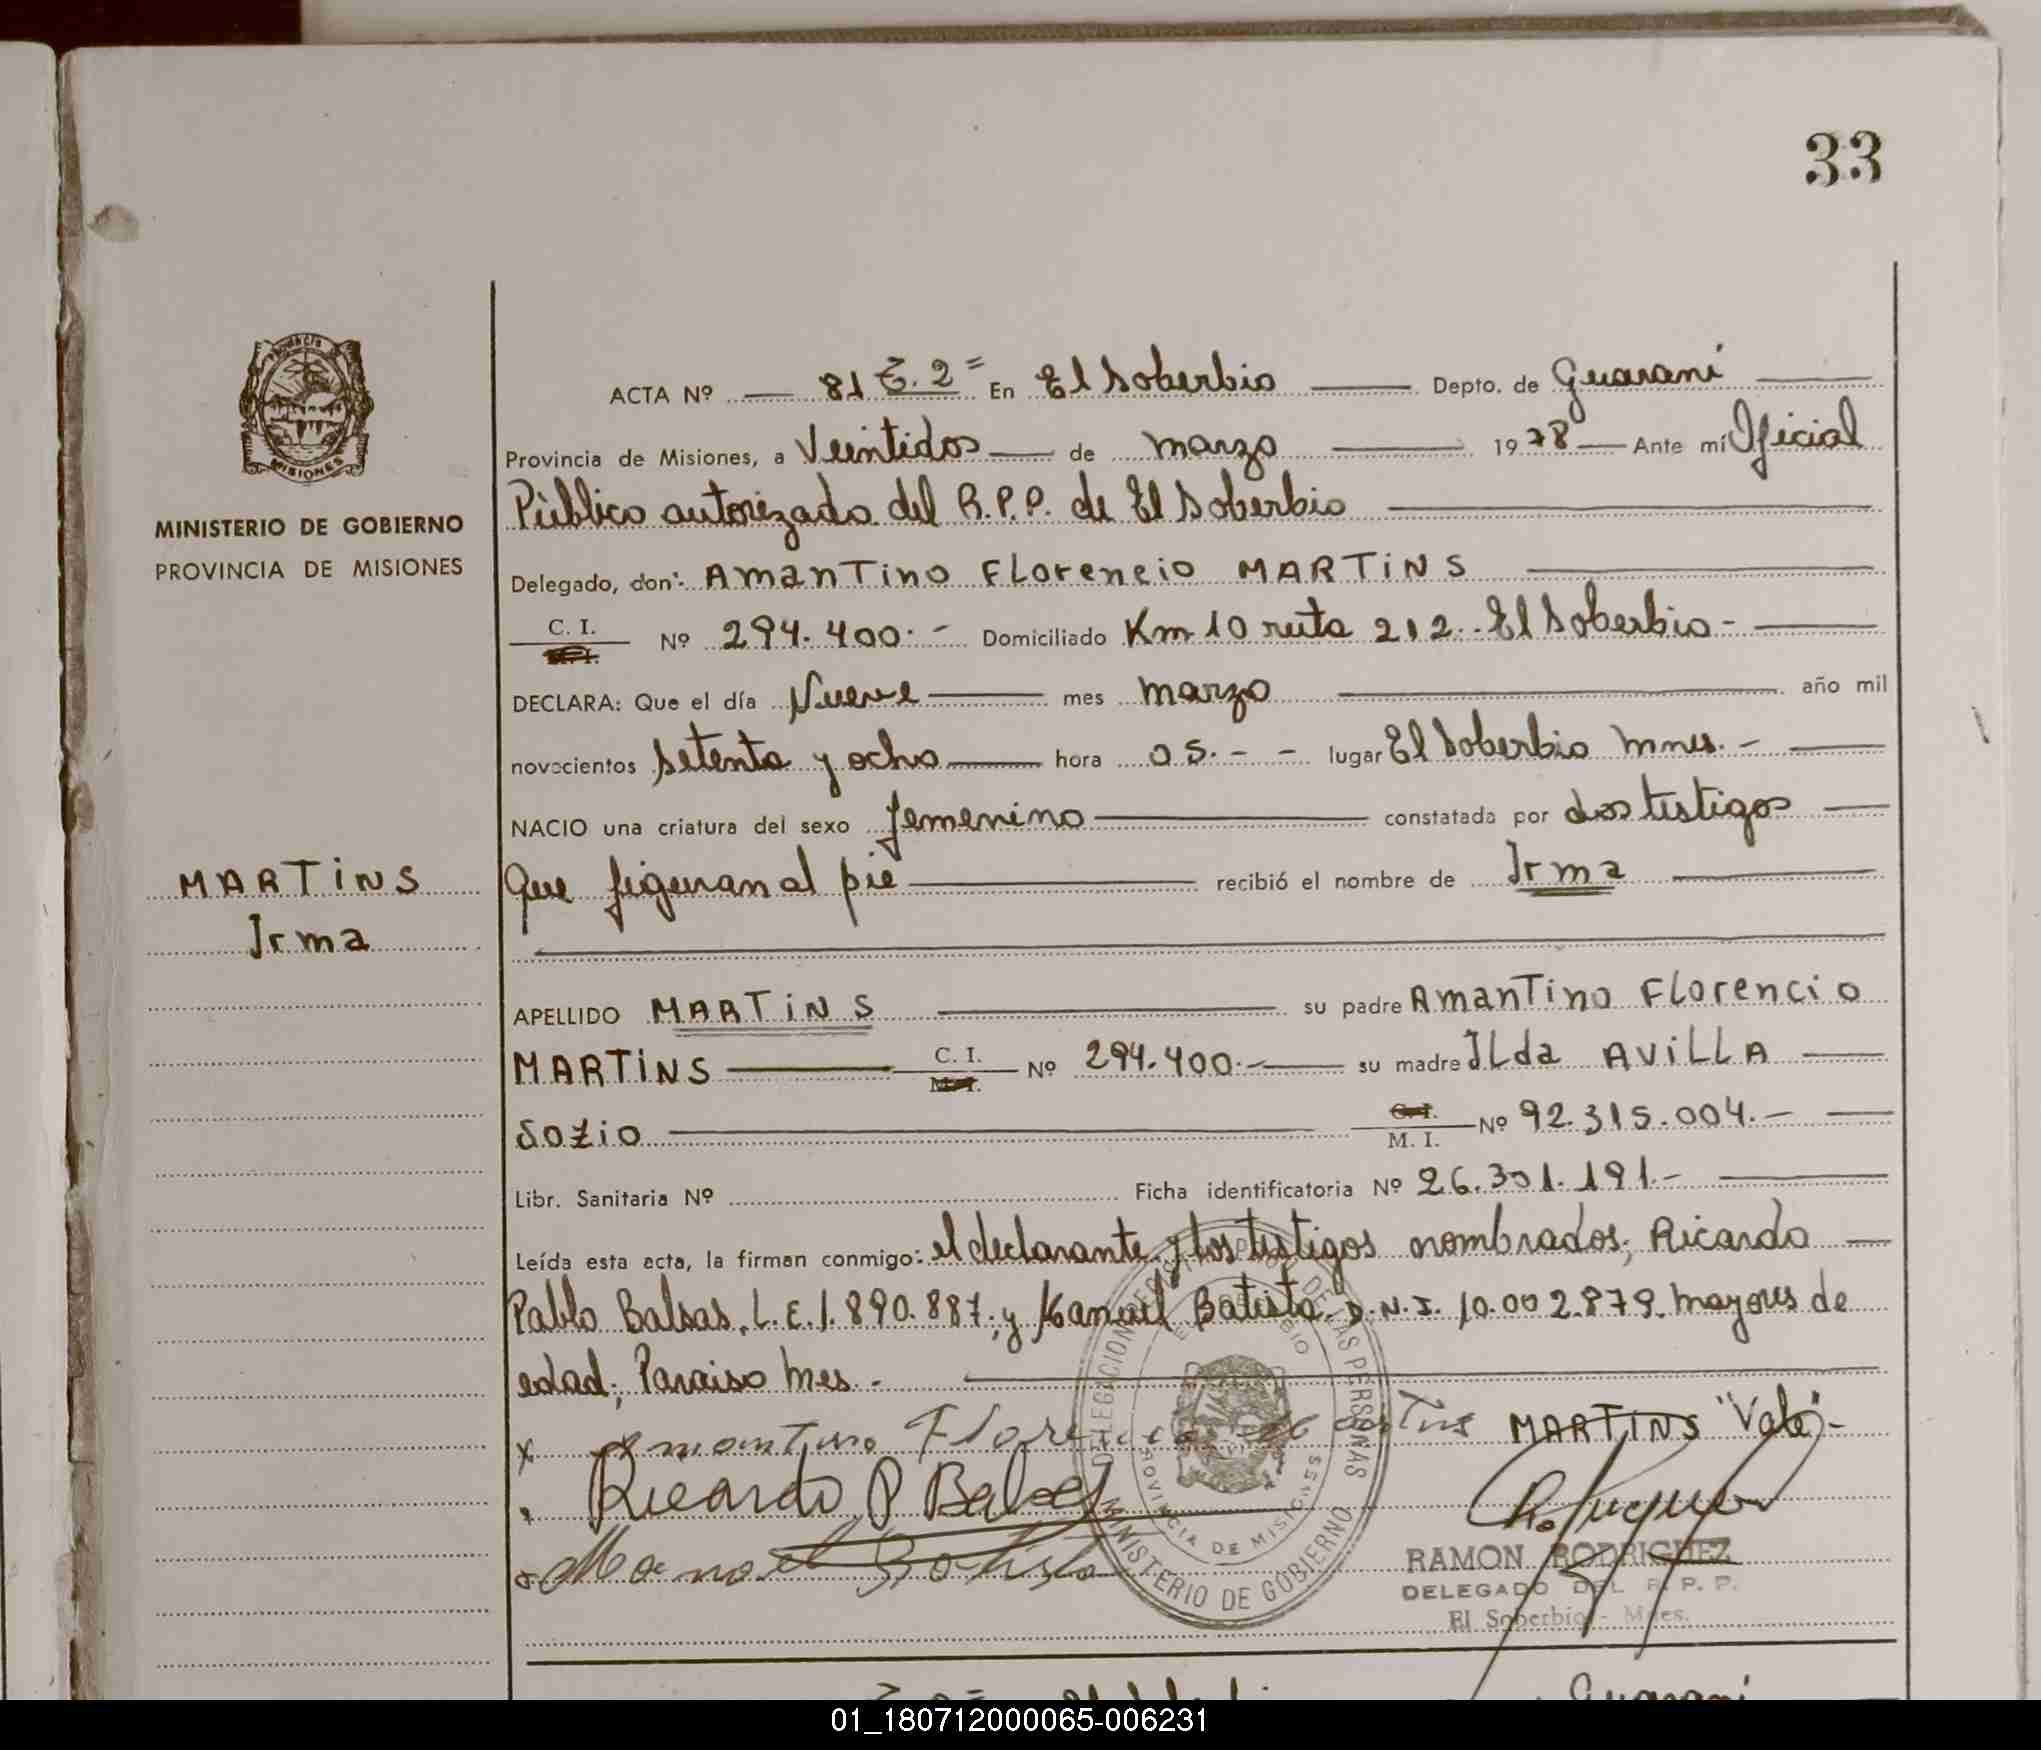 33
PROVINCIA DE
MISIONES
MINISTERIO DE GOBIERNO
PROVINCIA DE MISIONES
MARTINS
Irma
ACTA Nº — 81 T. 2= En El Soberbio — Depto. de Guaraní —
Provincia de Misiones, a Veintidos — de marzo — 1978 — Ante mí Oficial
Público autorizado del R.P.P. de El Soberbio —
Delegado, don: Amantino Florencio MARTINS —
C. I. Nº 294.400.- Domiciliado Km 10 ruta 212.. El Soberbio - —
DECLARA: Que el día Nueve — mes marzo — año mil
novecientos setenta y ocho — hora 05.- - lugar El Soberbio Mnes. - —
NACIO una criatura del sexo femenino — constatada por dos testigos —
Que figuran al pie — recibió el nombre de Irma —
APELLIDO MARTINS — su padre Amantino Florencio
MARTINS — C. I. M. I. Nº 294.400.- — su madre Ilda AVILLA —
SOZIO — C. I. M. I. Nº 92.315.004.- —
Libr. Sanitaria Nº Ficha identificatoria Nº 26.301.191.- —
Leída esta acta, la firman conmigo: el declarante y los testigos nombrados; Ricardo —
Pablo Balsas, L.E. 1.890.887; y Manuel Batista, D.N.I. 10.002.879. mayores de
edad; Paraiso Mes. - —
x Amantino Florencio Martins MARTINS "Vale" -
Ricardo P Balsas
Manoel Batista
DELEGACION REGISTRO PROV. DE LAS PERSONAS
EL SOBERBIO
PROVINCIA DE MISIONES
MINISTERIO DE GOBIERNO
RAMON RODRIGUEZ
DELEGADO DEL R. P. P.
El Soberbio - Mnes.
01_180712000065-006231